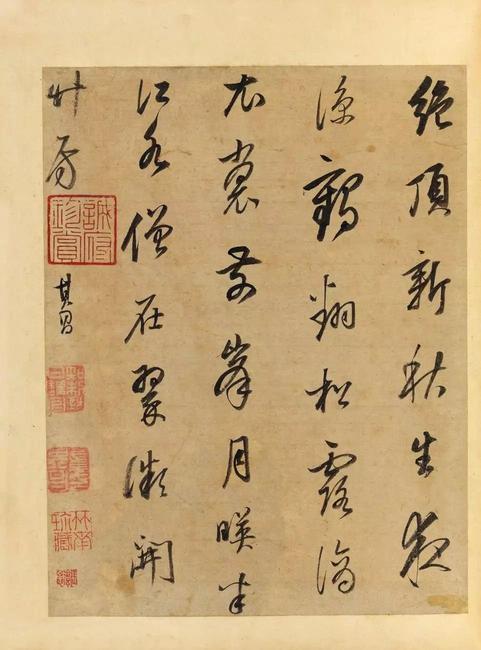 絕頂新秋生夜
涼鶴翻松露滴
衣裳前峯月映半
江水僧在翠微開
竹房
其昌